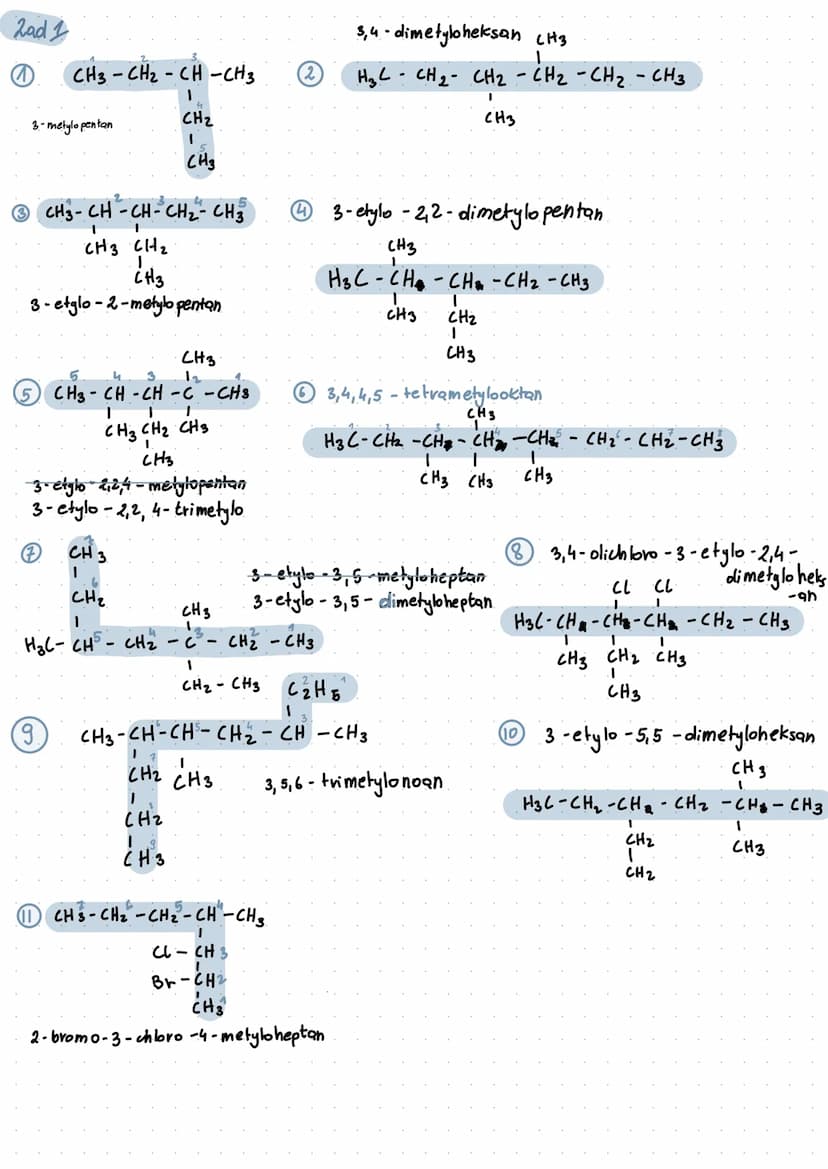 Zad 1
① CH3 - CH2 - CH - CH3
1 2 3
4
CH2
5
CH3
3-metylopentan
② 3,4-dimetyloheksan
CH3
H3C - CH2 - CH2 - CH2 - CH2 - CH3
CH3
③ CH3 - CH - CH - CH2 - CH3
1 2 3 4 5
CH3 CH2
CH3
3-etylo-2-metylopentan
④ 3-etylo-2,2-dimetylopentan
CH3
H3C - CH - CH - CH2 - CH3
CH3 CH2
CH3
CH3
⑤ CH3 - CH - CH - C - CH3
5 4 3 2 1
CH3 CH2 CH3
CH3
3-etylo-2,2,4-metylopentan
3-etylo-2,2,4-trimetylo
⑥ 3,4,4,5-tetrametylooktan
CH3
H3C - CH2 - CH - CH - CH - CH2 - CH2 - CH3
3 4 5 6 7 8
CH3 CH3 CH3
⑦ CH3
7
CH2
6
CH3
H3C - CH - CH2 - C - CH2 - CH3
5 4 3 2 1
CH2 - CH3
3-etylo-3,5-metyloheptan
3-etylo-3,5-dimetyloheptan
⑧ 3,4-dichloro-3-etylo-2,4-
dimetyloheks
-an
Cl Cl
H3C - CH - CH - CH - CH2 - CH3
CH3 CH2 CH3
CH3
⑨ C2H5
2 1
CH3 - CH - CH - CH2 - CH - CH3
6 5 4 3
CH2 CH3
7
CH2
8
CH3
9
3,5,6-trimetylonoan
⑩ 3-etylo-5,5-dimetyloheksan
CH3
H3C - CH2 - CH - CH2 - CH - CH3
CH2 CH3
CH2
⑪ CH3 - CH2 - CH2 - CH - CH3
7 6 5 4
Cl - CH 3
Br - CH 2
CH3 1
2-bromo-3-chloro-4-metyloheptan